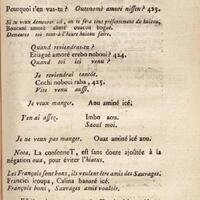 Pourquoi t'en vas-tu? Outonomé amoré nissen? 423.
Si tu veux demeurer ici, on te fera tous présentement du boucan.
Boucané amoré
Demeure
Quand reviendras-tu?
Etiagué amoré erebo noboui? 424.
Quand toi ici venu?
Je reviendrai tantôt.
Cochi noboui raba, 425.
Vite venu aussi.
Je veux manger. Aou aminé icé.
J'en ai assez. Imbo aou.
Saoul moi.
Je ne veux pas manger. Ouat aminé icé aou.
Nota. La consonne T, est sans doute ajoûtée à la
négation oua, pour éviter l'hiatus.
Les François sont bons, ils veulent être amis des Sauvages.
Francici iroupa, Calina banaré icé.
François bons, Sauvages amis vouloir.